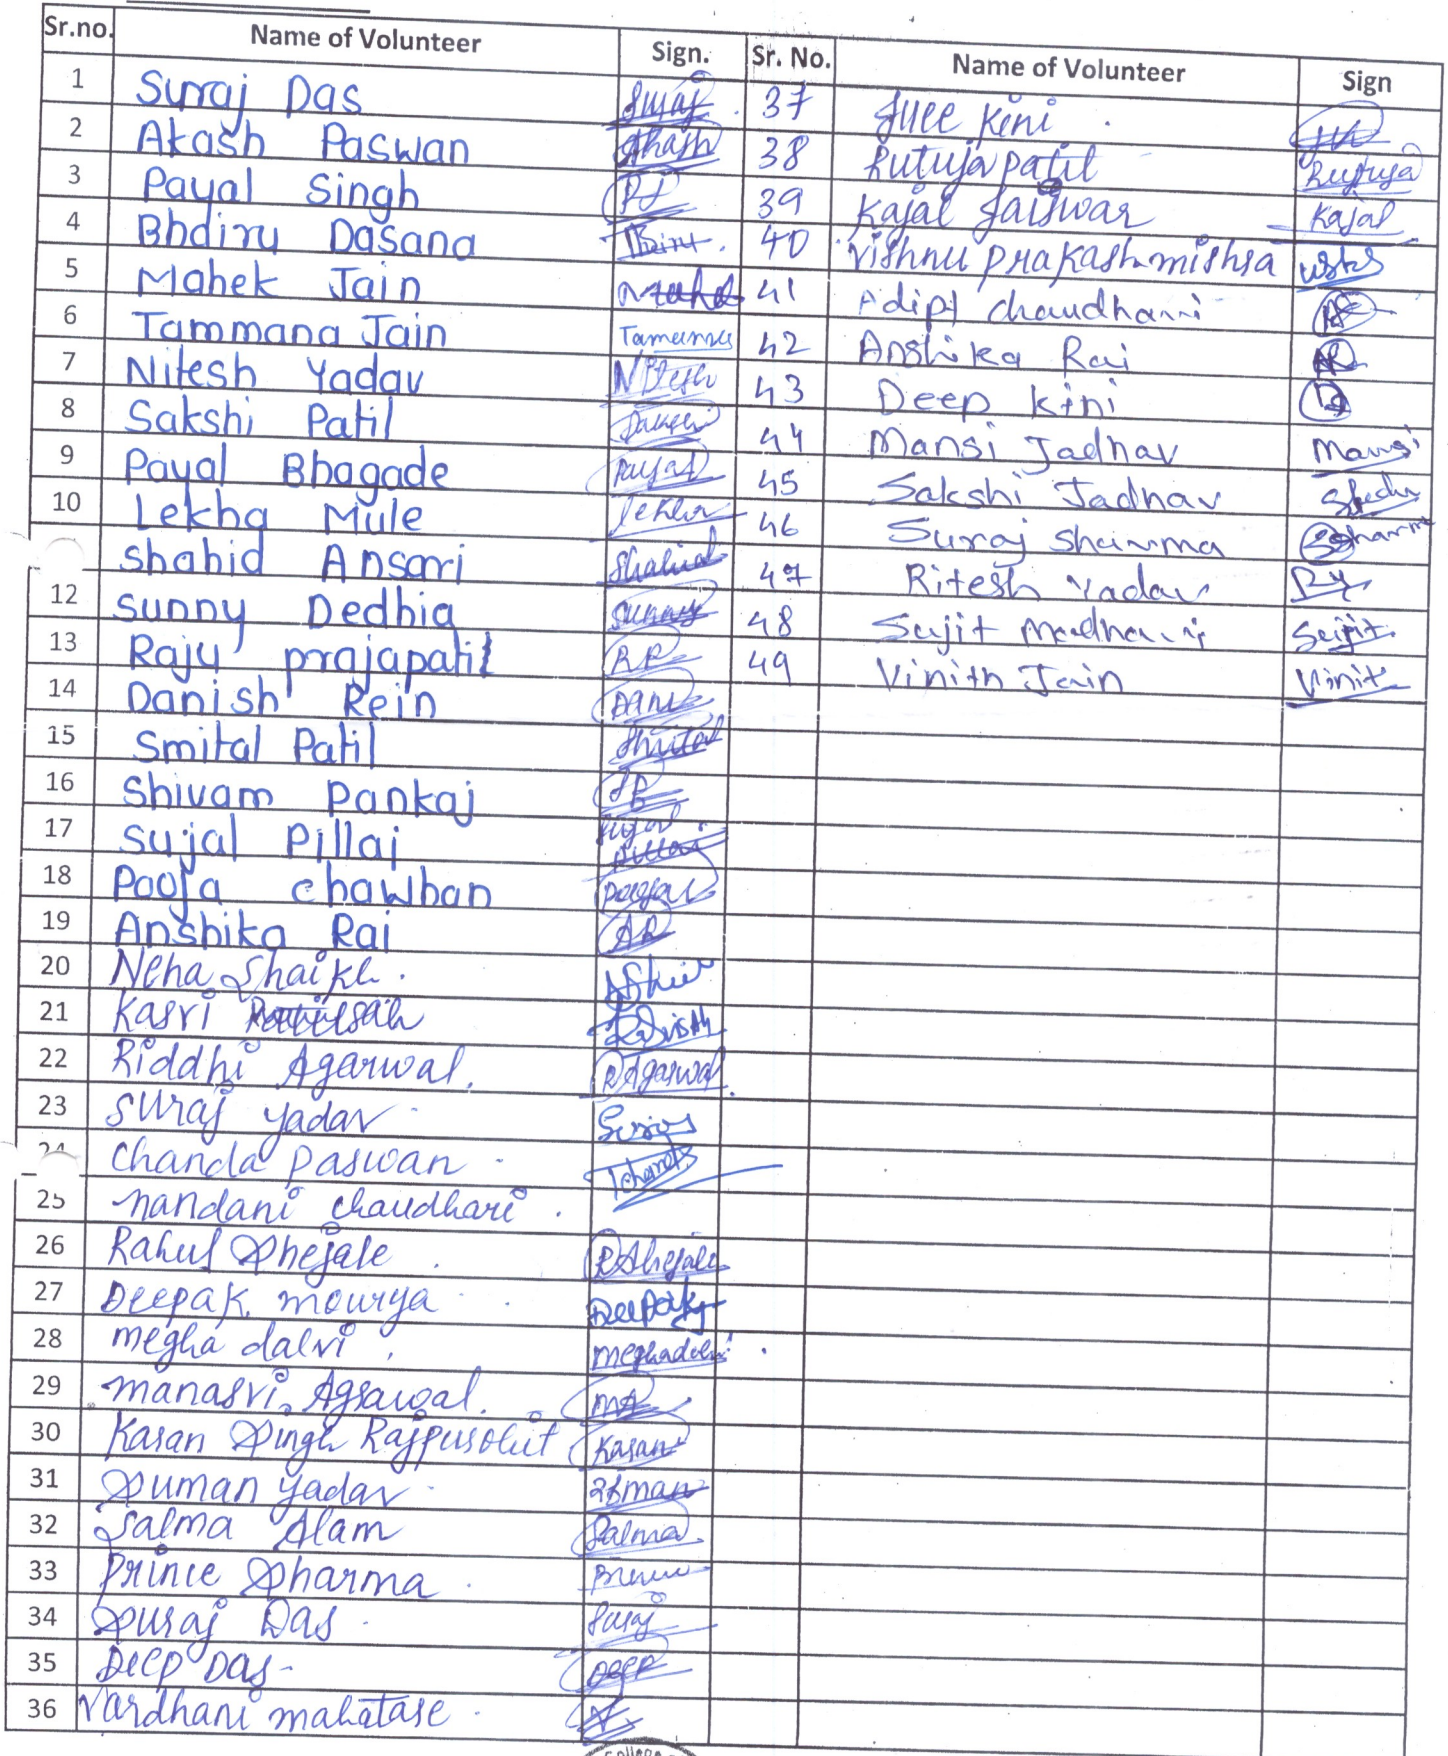 Sr.no. Name of Volunteer Sign. Sr. No. Name of Volunteer Sign
1 Suraj Das Suraj 37 Juee Kini
2 Akash Paswan Akash 38 Rutuja patil Rutuja
3 Payal Singh PS 39 Kajal Jaiswar Kajal
4 Bhdiru Dasana 40 Vishnu prakash mishra
5 Mahek Jain 41 Adipt chaudhari
6 Tammana Jain 42 Anshika Rai AR
7 Nitesh Yadav Nitesh 43 Deep Kini
8 Sakshi Patil Sakshi 44 Mansi Jadhav Mansi
9 Payal Bhagade Payal 45 Sakshi Jadhav
10 Lekha Mule lekha 46 Suraj Sharma Sharma
Shahid Ansari Shahid 47 Ritesh Yadav RY
12 Sunny Dedhia Sunny 48 Sujit Madhavi Sujit
13 Raju prajapatil RP 49 Vinith Jain Vinit
14 Danish Rein Dani
15 Smital Patil Smital
16 Shivam Pankaj SP
17 Sujal Pillai Sujal Pillai
18 Pooja chawhan Pooja
19 Anshika Rai AR
20 Neha Shaikh
21 Kasri
22 Riddhi Agarwal RAgarwal
23 Suraj yadav Suraj
24 Chanda paswan
25 nandani chaudhari
26 Rahul Shejale RShejale
27 Deepak mourya Deepak
28 megha dalvi meghadalvi
29 manasvi Agrawal MA
30 Karan Singh Rajpurohit Karan
31 Suman yadav
32 Salma Alam Salma
33 Prince Sharma
34 Suraj Das Suraj
35 Deep Das Deep
36 Vardhani mahatase
College